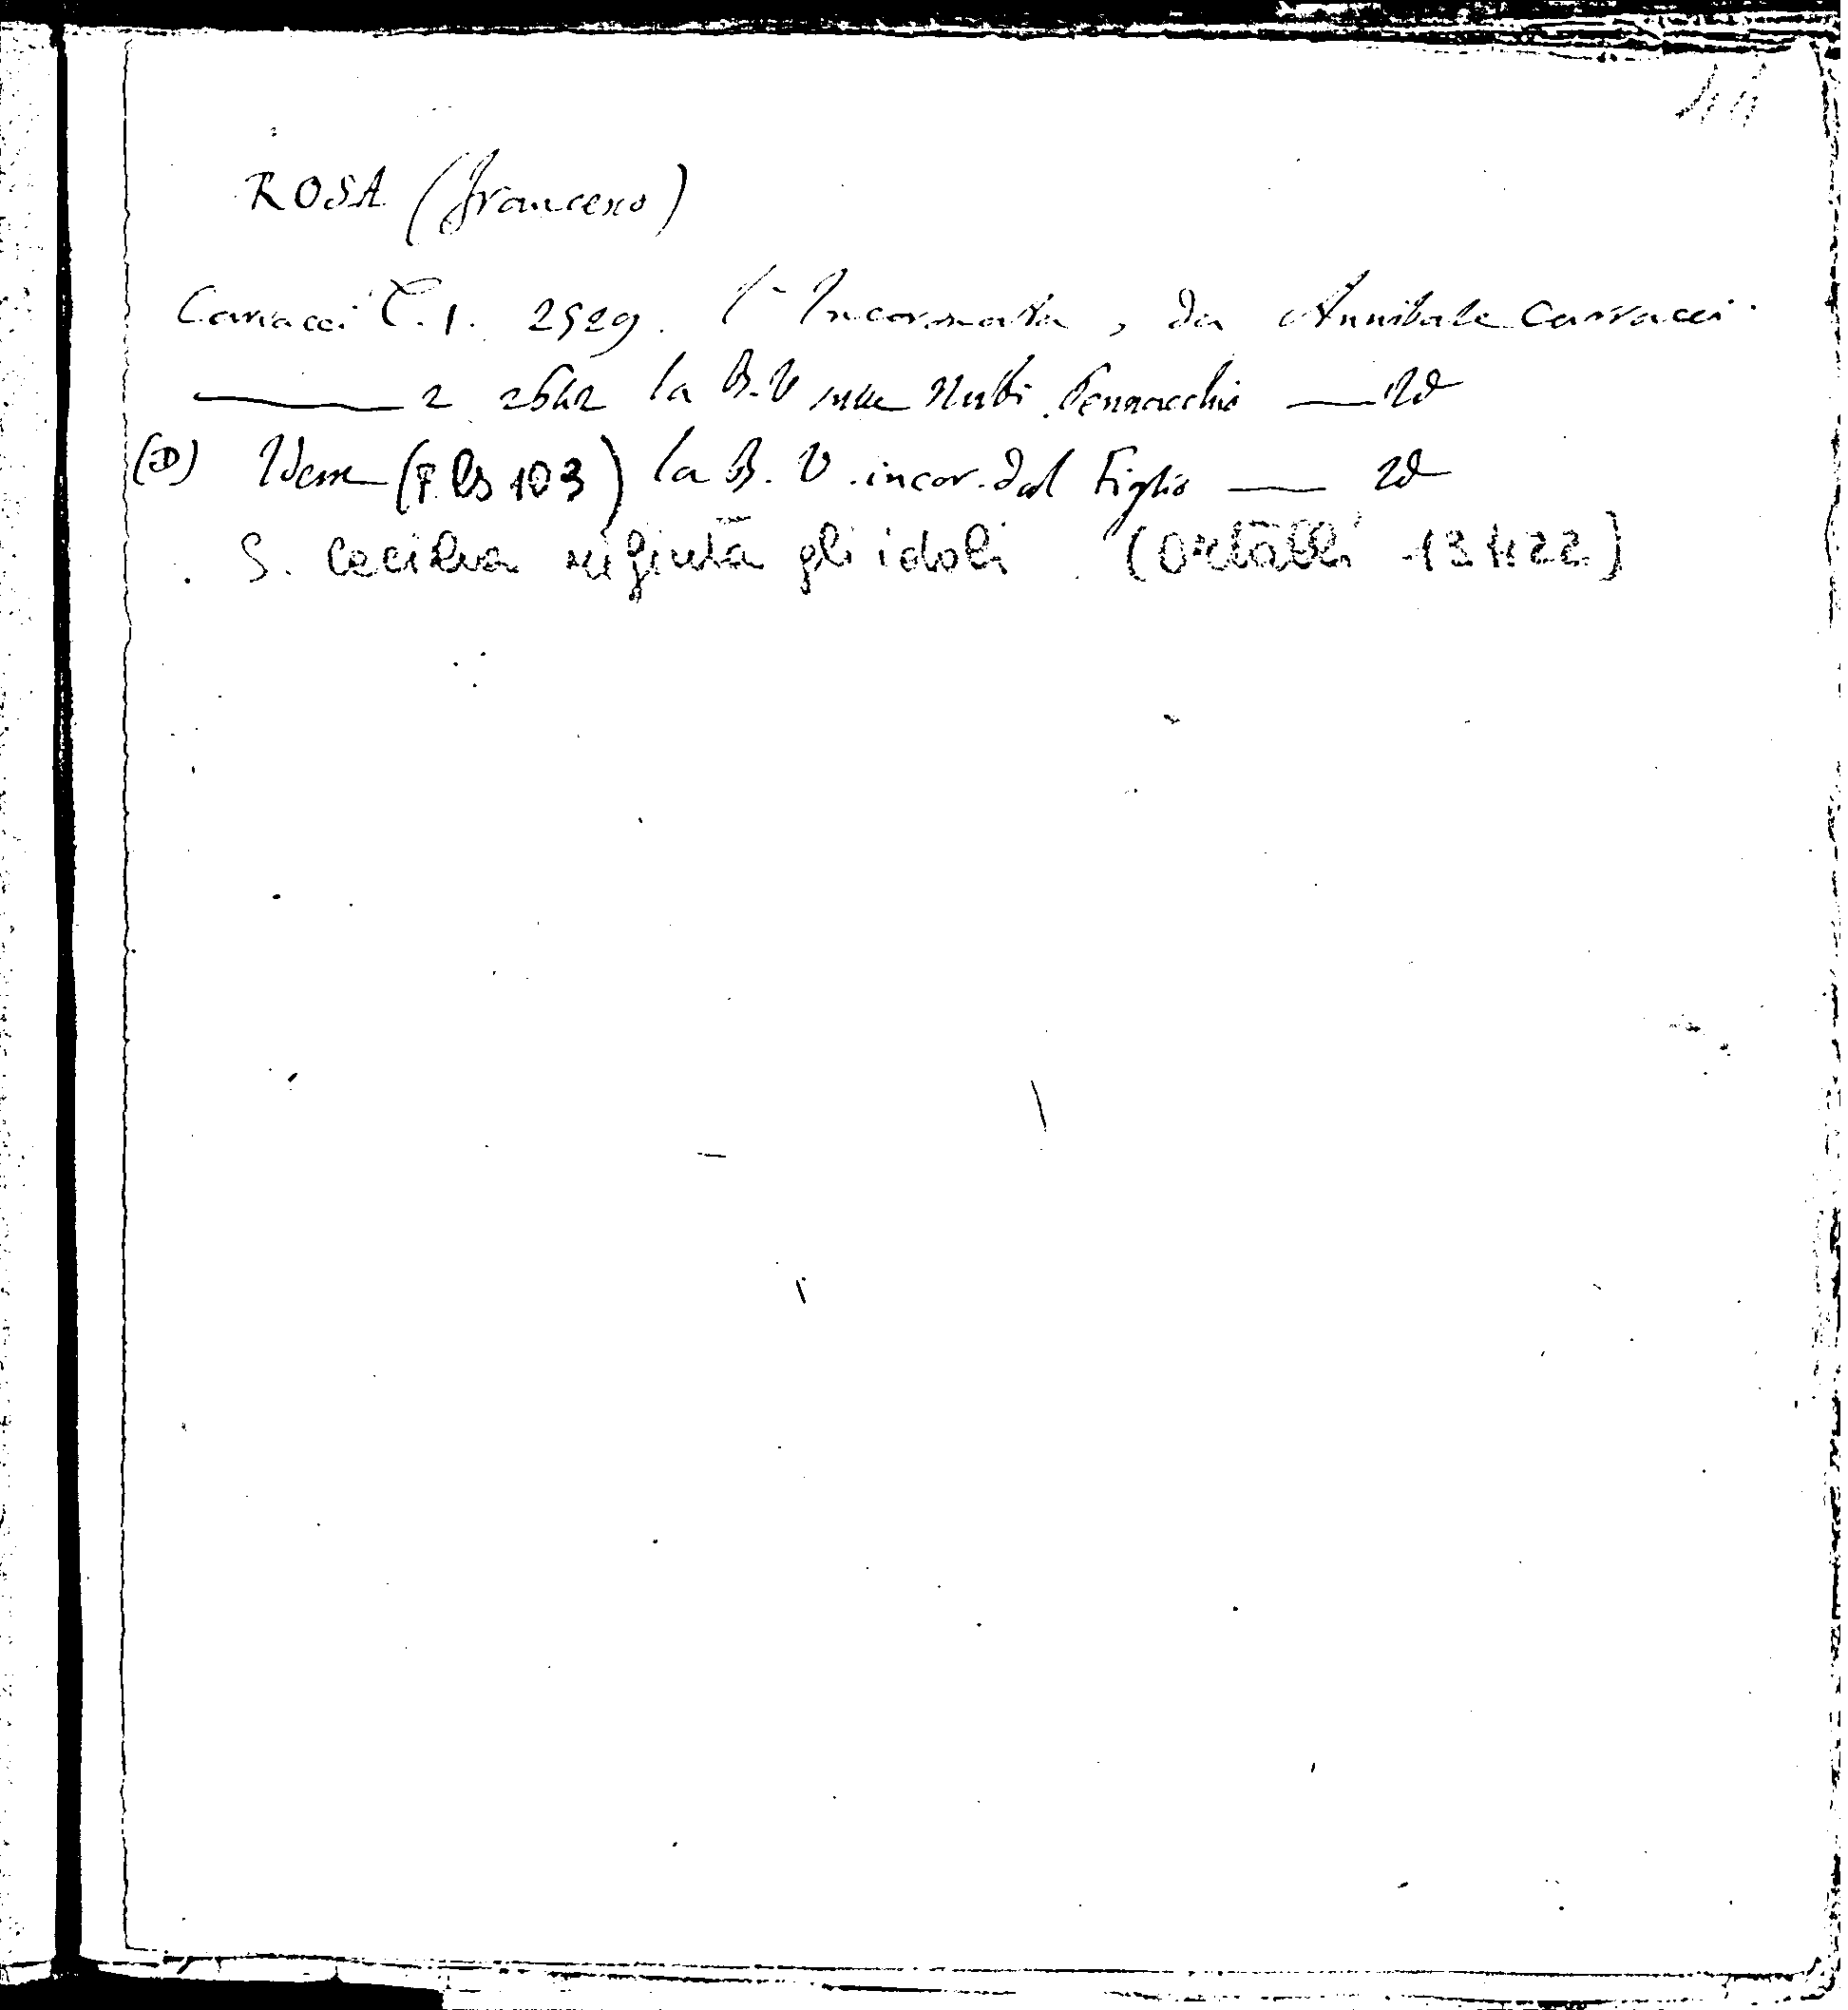 44
ROSA (Francesco)
Carracci T. 1. 2529. l'Incoronata, da Annibale Carracci.
—— 2 2642 la B.V sulle Nubi. Pennacchio —— Id
(D) Idem (P. Bs 103) la B. V. incor. dal Figlio —— Id
S. Cecilia rifiuta gli idoli (Ortalli 13422)